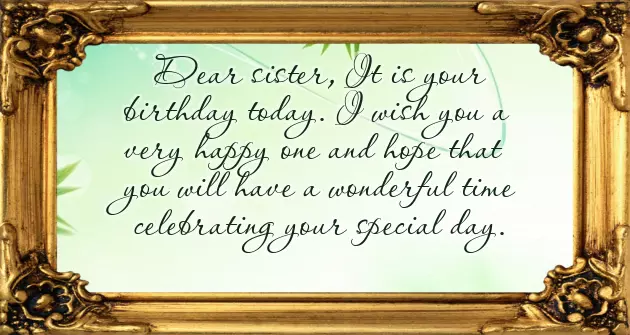 Dear sister, It is your
birthday today. I wish you a
very happy one and hope that
you will have a wonderful time
celebrating your special day.